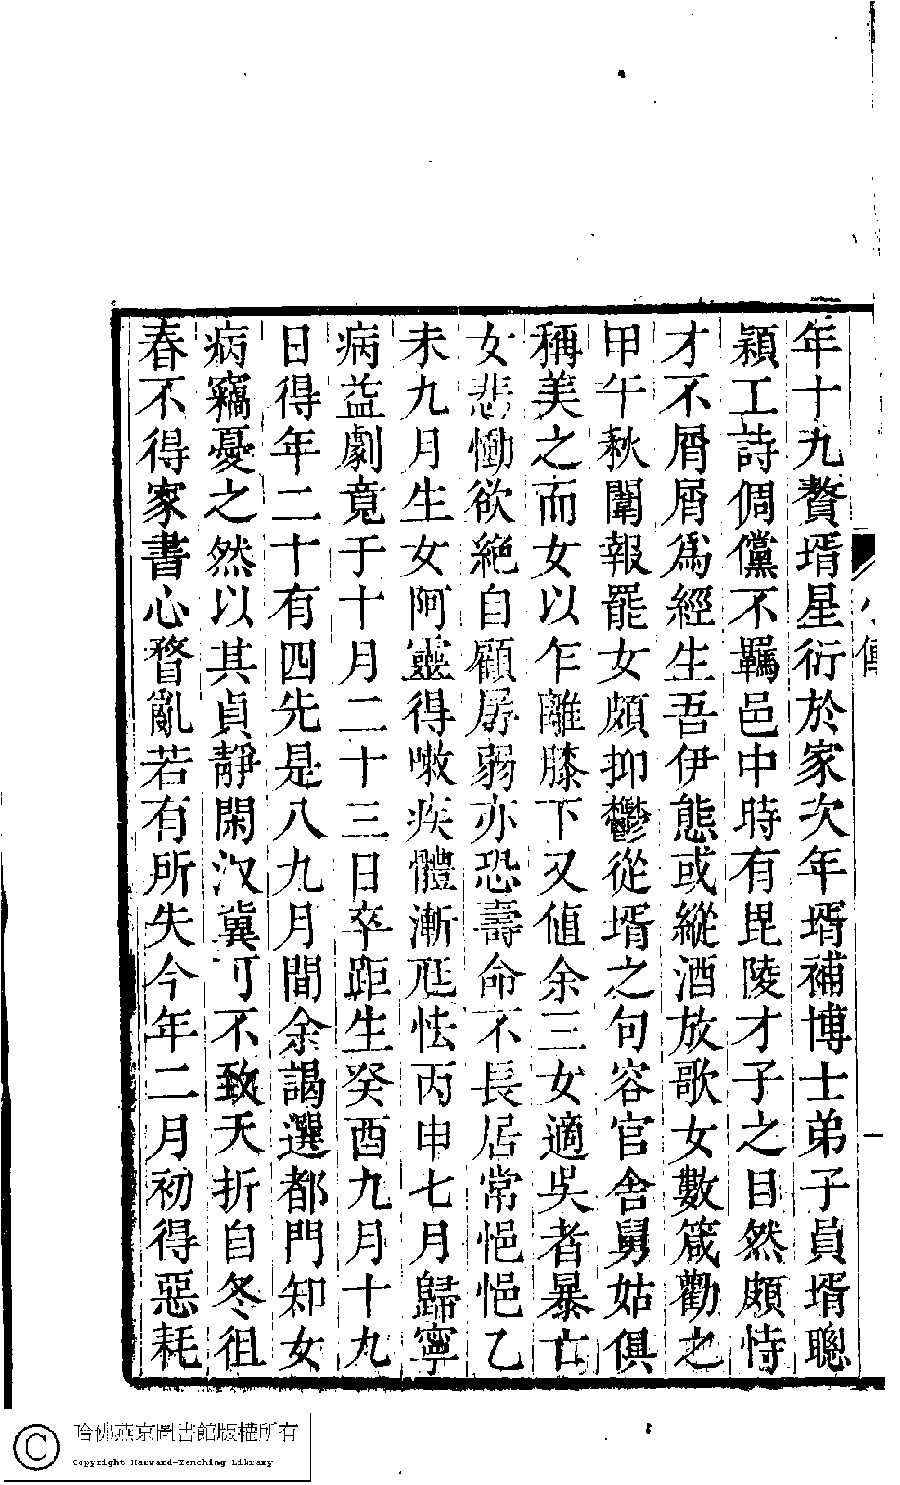 年十九贅壻星衍於家次年壻補博士弟子員壻聰
穎工詩倜儻不羈邑中時有毘陵才子之目然頗恃
才不屑屑爲經生吾伊態或縱酒放歌女數箴勸之
甲午秋闈報罷女頗抑鬱從壻之句容官舍舅姑俱
稱美之而女以乍離膝下又値余三女適吳者暴亡
女悲慟欲絶自顧孱弱亦恐壽命不長居常悒悒乙
未九月生女阿靈得嗽疾體漸尫怯丙申七月歸寧
病益劇竟于十月二十三日卒距生癸酉九月十九
日得年二十有四先是八九月間余謁選都門知女
病竊憂之然以其貞靜閑汉冀可不致夭折自冬徂
春不得家書心瞀亂若有所失今年二月初得惡耗
傳
哈佛燕京圖書館版權所有
Copyright Harvard-Yenching Library